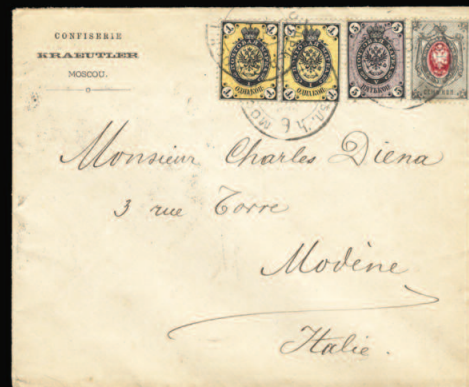 CONFISERIE
KRAEUTLER
MOSCOU.
1 1 1 1 5 5
Monsieur Charles Diena
3 rue Torre
Modène
Italie.